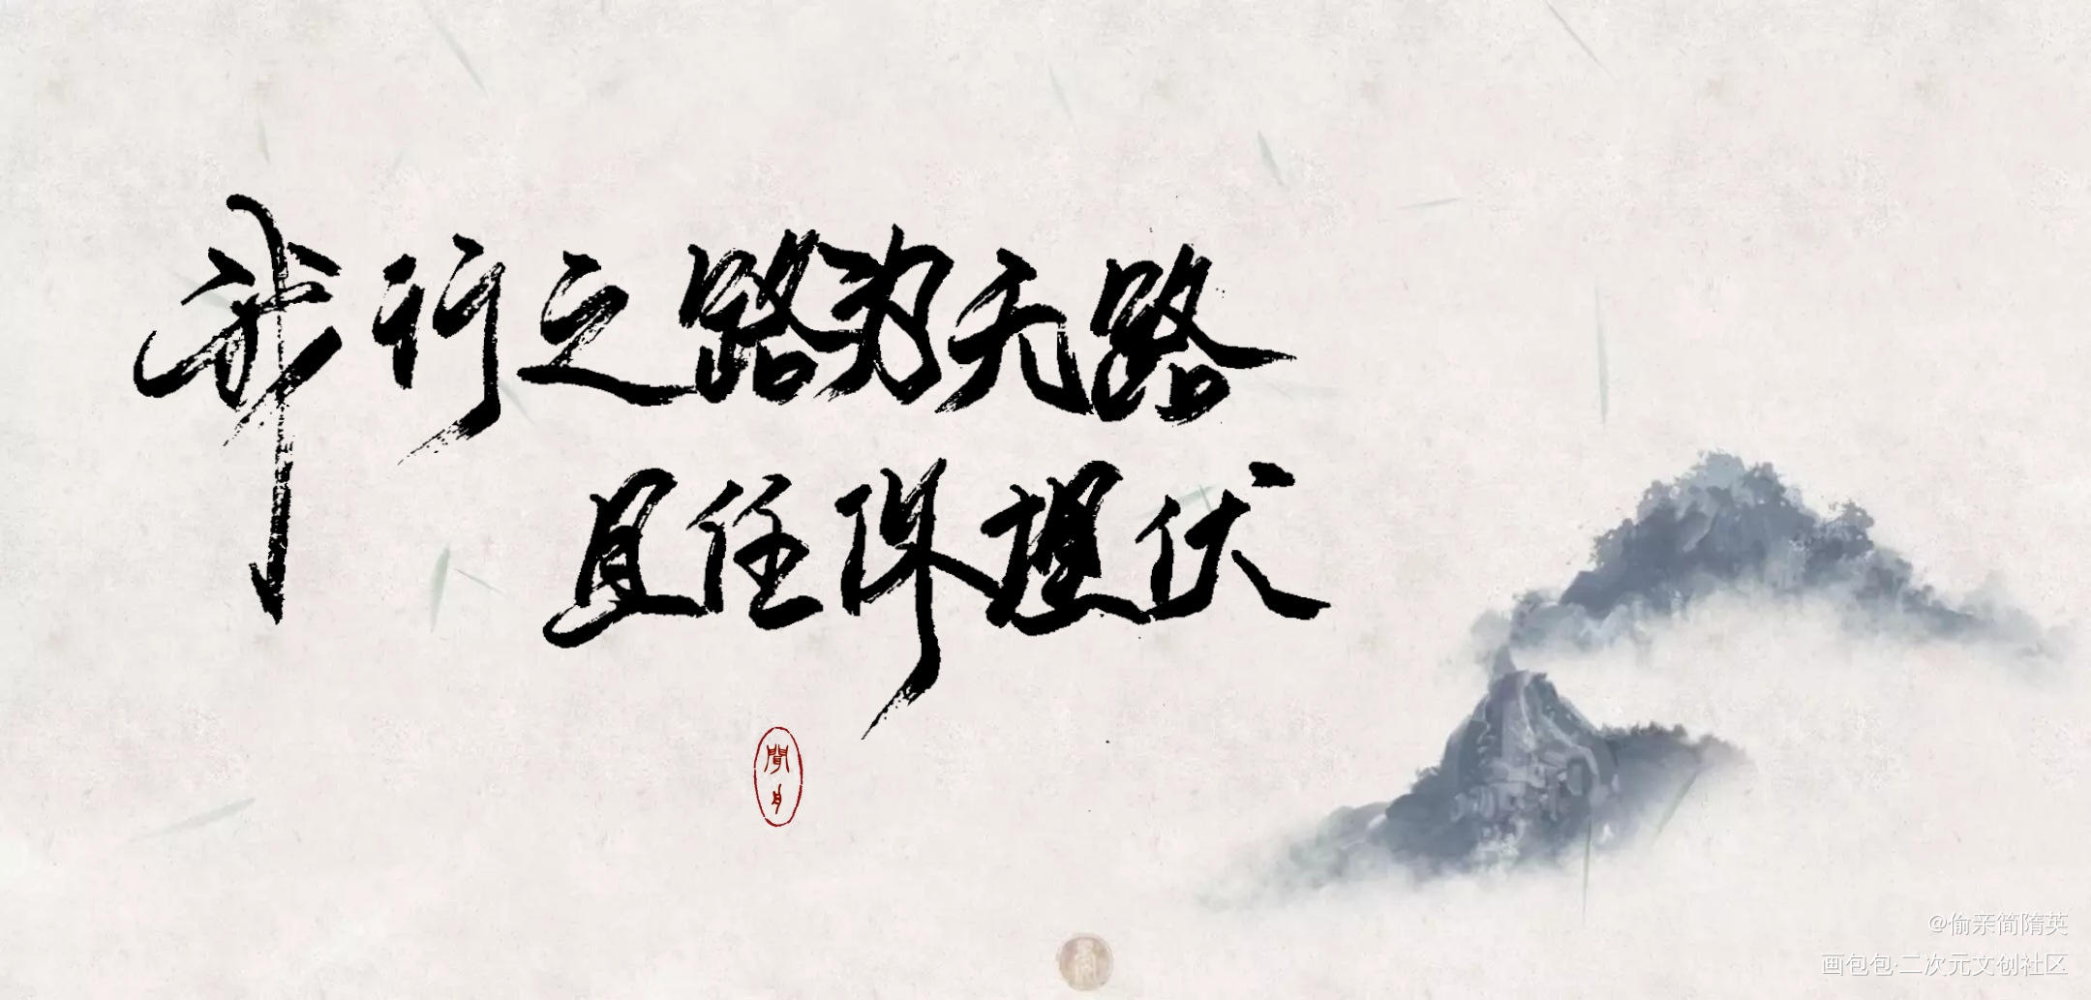 我行之路为无路
且任殊埋伏
聞
@偷亲简隋英
画包包·二次元文创社区